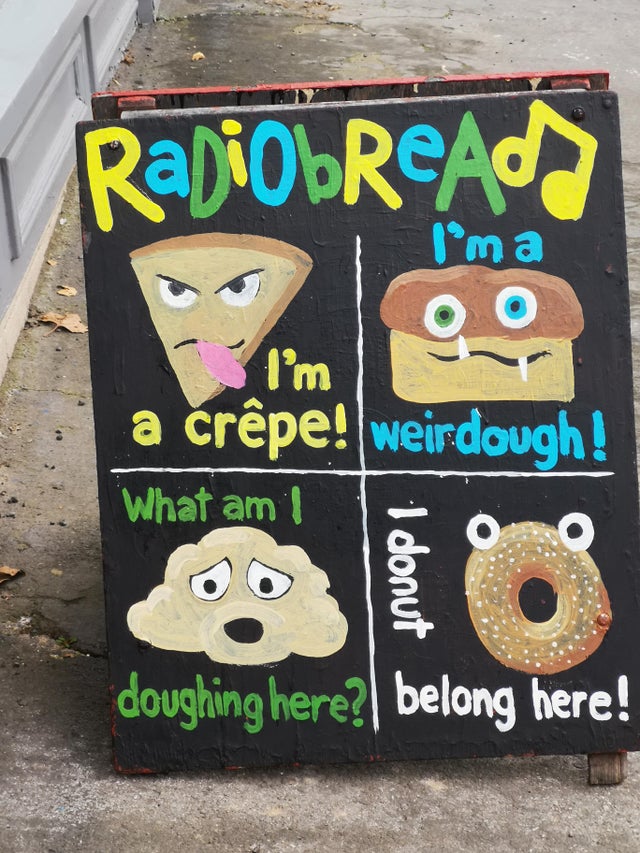 RaDiObReAd
I'm
a crêpe!
I'm a
weirdough!
What am I
doughing here?
I donut
belong here!